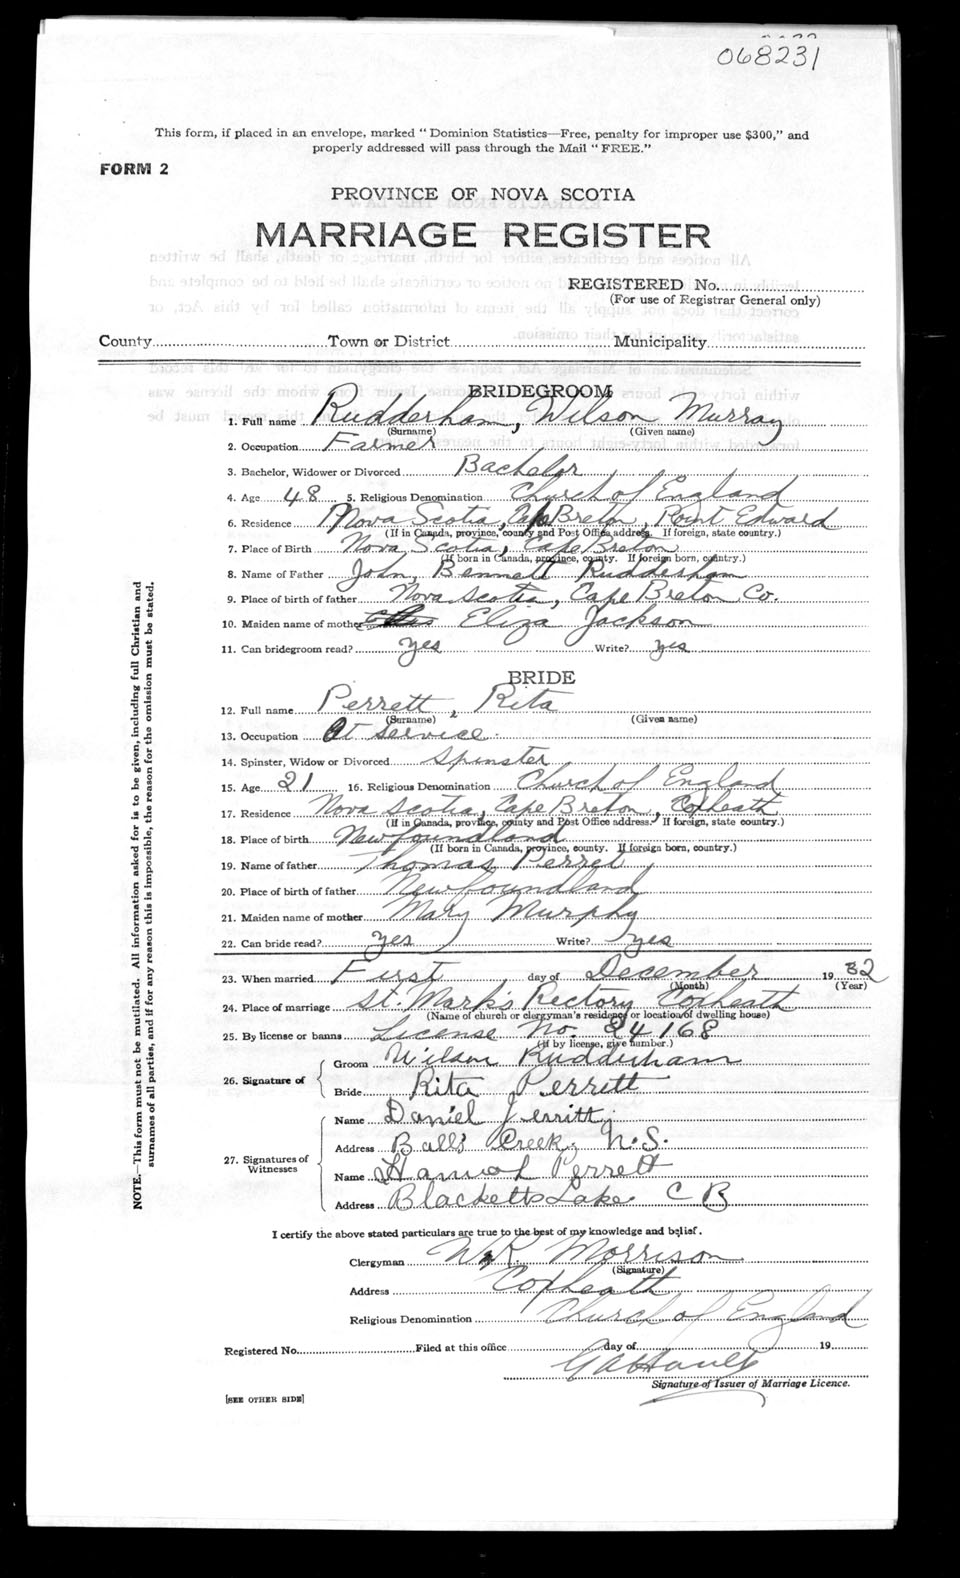 068231
This form, if placed in an envelope, marked "Dominion Statistics—Free, penalty for improper use $300," and
properly addressed will pass through the Mail "FREE."
FORM 2
PROVINCE OF NOVA SCOTIA
MARRIAGE REGISTER
REGISTERED No.
(For use of Registrar General only)
County Town or District Municipality
BRIDEGROOM
1. Full name Rudderham, Wilson Murray
(Surname) (Given name)
2. Occupation Farmer
3. Bachelor, Widower or Divorced Bachelor
4. Age 48 5. Religious Denomination Church of England
6. Residence Nova Scotia, Cape Breton, Point Edward
(If in Canada, province, county and Post Office address. If foreign, state country.)
7. Place of Birth Nova Scotia, Cape Breton
(If born in Canada, province, county. If foreign born, country.)
8. Name of Father John Bennett Rudderham
9. Place of birth of father Nova Scotia, Cape Breton Co.
10. Maiden name of mother Eliza Jackson
11. Can bridegroom read? yes Write? yes
BRIDE
12. Full name Perrett, Rita
(Surname) (Given name)
13. Occupation At service
14. Spinster, Widow or Divorced Spinster
15. Age 21 16. Religious Denomination Church of England
17. Residence Nova Scotia, Cape Breton, Coxheath
(If in Canada, province, county and Post Office address. If foreign, state country.)
18. Place of birth Newfoundland
(If born in Canada, province, county. If foreign born, country.)
19. Name of father Thomas Perret
20. Place of birth of father Newfoundland
21. Maiden name of mother Mary Murphy
22. Can bride read? yes Write? yes
23. When married First day of December 1932
(Month) (Year)
24. Place of marriage St. Mark's Rectory Coxheath
(Name of church or clergyman's residence or location of dwelling house)
25. By license or banns License No. 84168
(If by license, give number.)
26. Signature of Groom Wilson Rudderham
Bride Rita Perrett
27. Signatures of Witnesses
Name Daniel
Address Balls Creek, N.S.
Name Hannah Perrett
Address Blacketts Lake C B
I certify the above stated particulars are true to the best of my knowledge and belief.
Clergyman W. R. Morrison
(Signature)
Address Coxheath
Religious Denomination Church of England
Registered No. Filed at this office day of 19
Signature of Issuer of Marriage Licence.
[SEE OTHER SIDE]
NOTE.—This form must not be mutilated. All information asked for is to be given, including full Christian and
surnames of all parties, and if for any reason this is impossible, the reason for the omission must be stated.